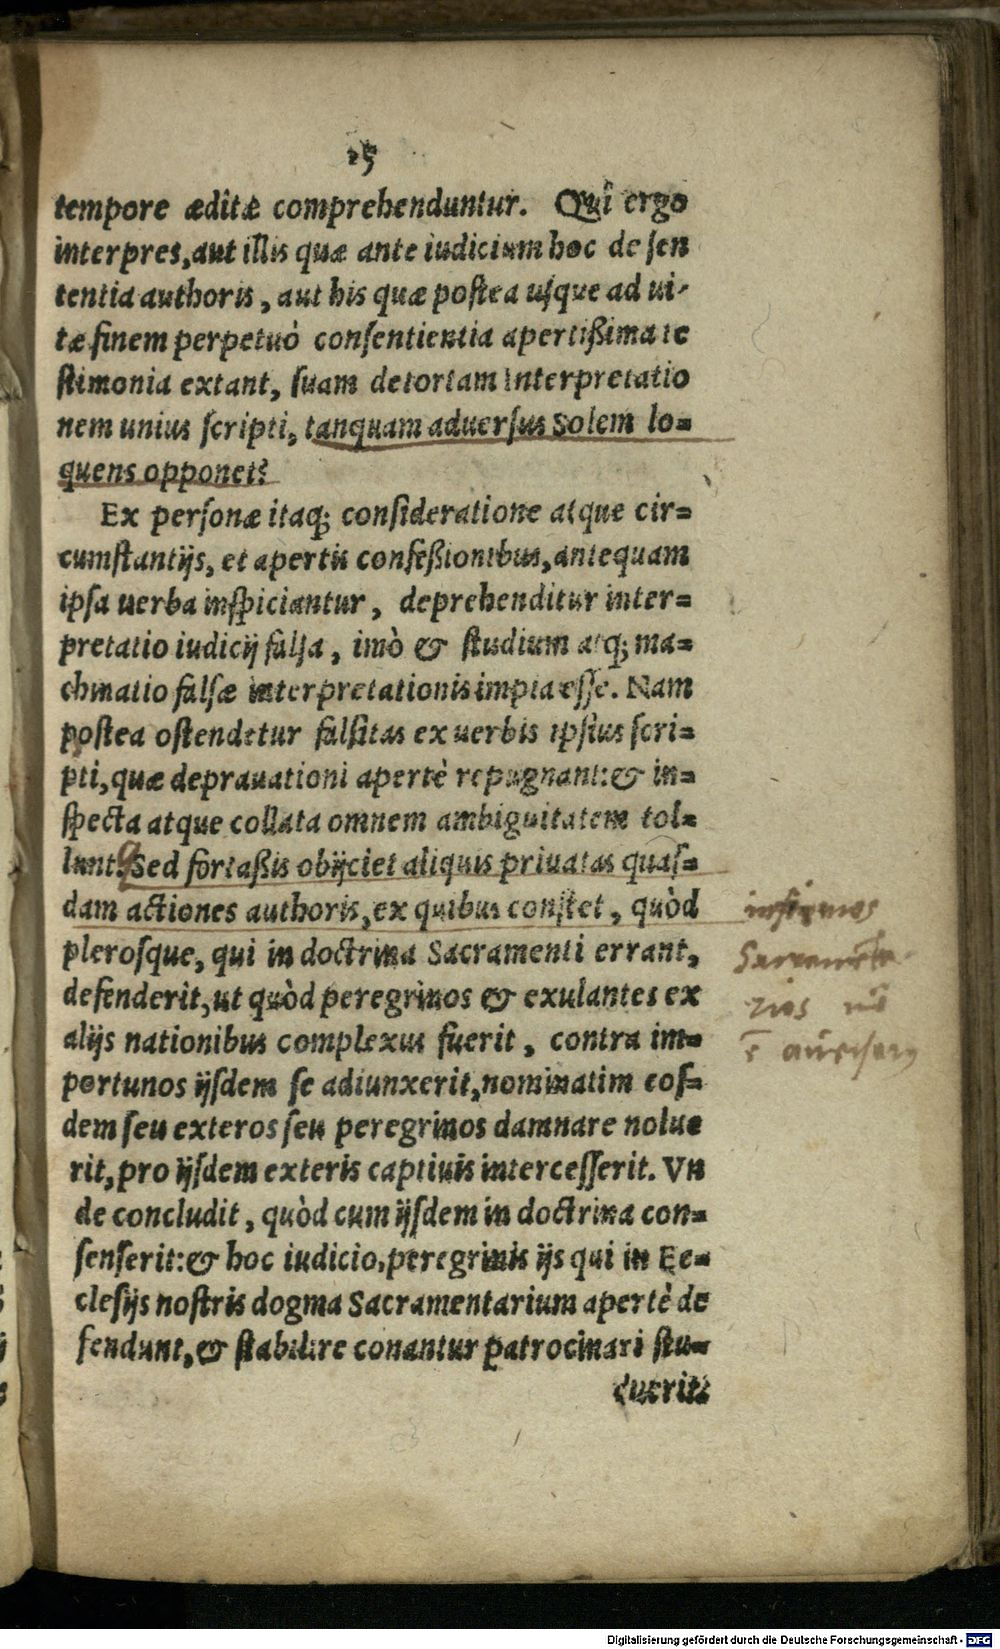 25
tempore æditæ comprehenduntur. Qui ergo
interpres, aut illis quæ ante iudicium hoc de ſen
tentia authoris, aut his quæ poſtea uſque ad ui-
tæ finem perpetuò conſentientia apertißima te
ſtimonia extant, ſuam detortam interpretatio
nem unius ſcripti, tanquam aduerſus Solem lo=
quens opponet?
Ex perſonæ itaq; conſideratione atque cir=
cumſtantijs, et apertis confeßionibus, antequam
ipſa uerba inſpiciantur, deprehenditur inter=
pretatio iudicij falſa, imò & ſtudium atq; ma=
chinatio falſæ interpretationis impia eſſe. Nam
poſtea oſtendetur falſitas ex uerbis ipſius ſcri=
pti, quæ deprauationi apertè repugnant: & in=
ſpecta atque collata omnem ambiguitatem tol=
lunt. Sed fortaßis obijciet aliquis priuatas quaſ=
dam actiones authoris, ex quibus conſtet, quòd
pleroſque, qui in doctrina Sacramenti errant,
defenderit, ut quòd peregrinos & exulantes ex
alijs nationibus complexus fuerit, contra im=
portunos ijſdem ſe adiunxerit, nominatim eoſ=
dem ſeu exteros ſeu peregrinos damnare nolue
rit, pro ijſdem exteris captiuis interceſſerit. Vn
de concludit, quòd cum ijſdem in doctrina con=
ſenſerit: & hoc iudicio, peregrinis ijs qui in Ec=
cleſijs noſtris dogma Sacramentarium apertè de
fendunt, & ſtabilire conantur patrocinari ſtu=
duerit:
infirmos
Sacramenta
rios
Digitalisierung gefördert durch die Deutsche Forschungsgemeinschaft - DFG